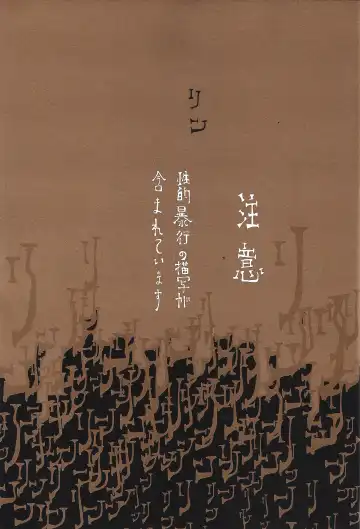 リン
注意
性的暴行の描写が
含まれています